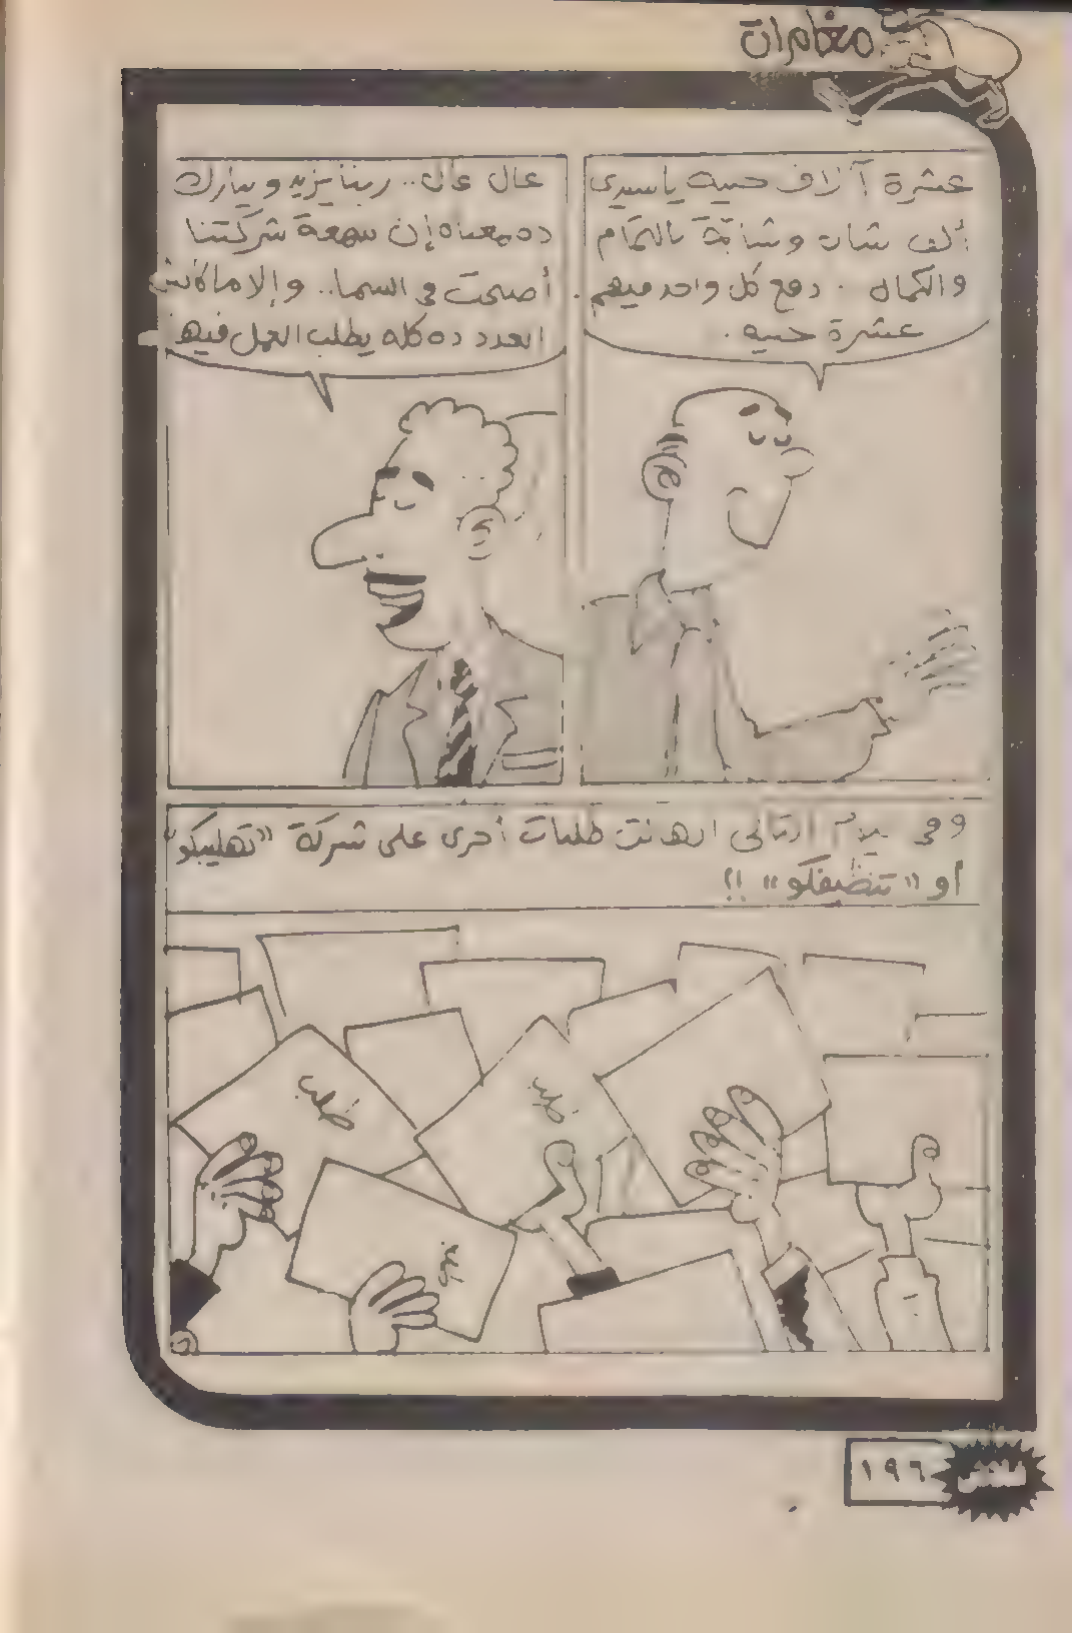 مغامرات
عشرة آلاف جنيه يا سيدى
ألف شاب وشابة بالتمام
والكمال . دفع كل واحد فيهم
عشرة جنيه .
عال عال .. ربنا يزيد ويبارك
ده معناه إن سمعة شركتنا
أصبحت فى السما .. وإلا ماكانش
العدد ده كله يطلب العمل فيها
وفى يوم انهالت طلبات أخرى على شركة «تهليبكو»
أو «تنظيفكو» !!
طلب
طلب
طلب
١٩٦